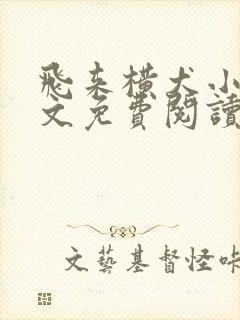 飛來橫犬小
文免費閱讀
文藝基督怪咔